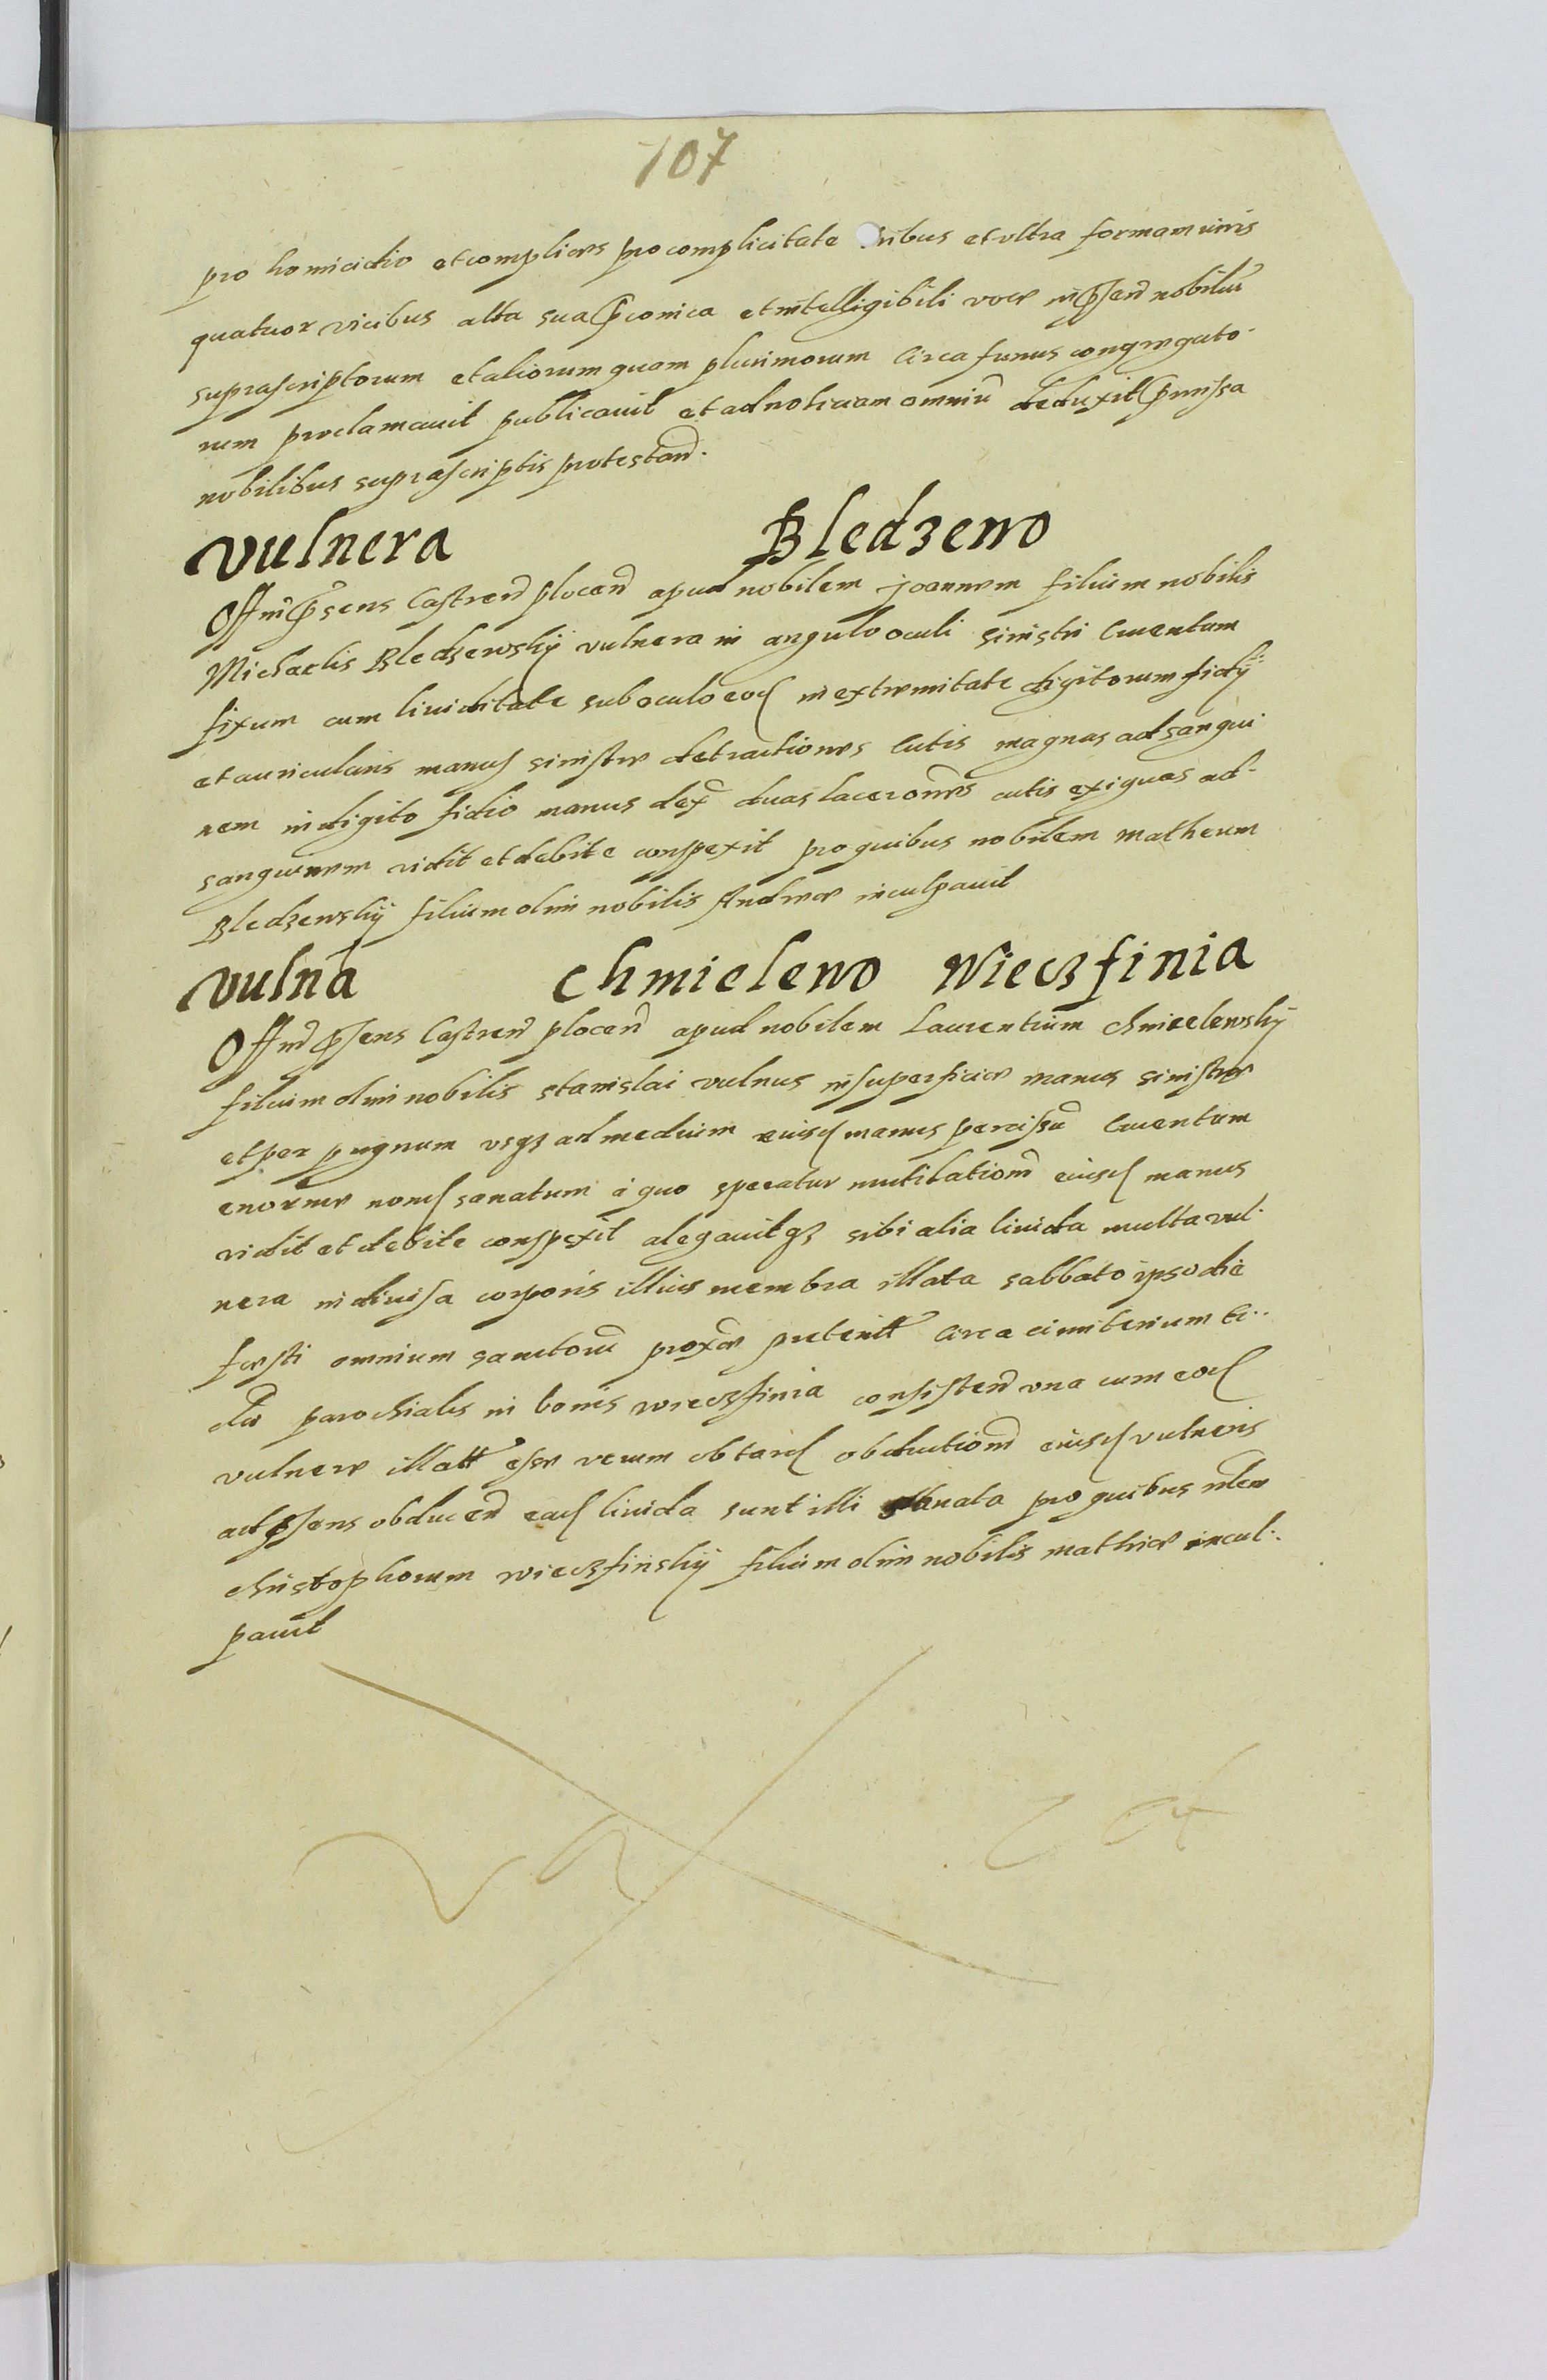 107
pro homicidio et complices pro complicitate et vltra formam iuris
quatuor vicibus alta sua p̄conica et intelligibili voce in p̄sen̄ nobiliū
suprascriptorum et aliorum quam plurimorum circa funus congregato-
rum proclamauit publicauit et ad notitiam omniū deduxit p̄missa
nobilibus suprascriptis protestan̄.
Vulnera Bledzewo
Off̄m p̄sens Castren̄ plocen̄ apud nobilem joannem filium nobilis
Michaelis Bledzewskÿ vulnera in angulo oculi sinistri cruentum
fixum cum liuiditate sub oculo eod in extremitate digitorum fidÿ
et auricularis manus sinistre detractiones cutis magnas ad sangui
nem in digito fidio manus dex̄ duas laceron̄es cutis exiguas ad-
sanguinem vidit et debite conspexit pro quibus nobilem matheum
Bledzewskÿ filium olim nobilis Andree inculpauit
Vuln̄a Chmielewo Wieczfinia
Off̄m p̄sens Castren̄ plocen̄ apud nobilem Laurentium chmielewskÿ
filium olim nobilis stanislai vulnus in superficie manus sinistre
et per pugnum vsqз ad medium eiusd manus percissū cruentum
enorme nond sanatum à quo speratur mutilationē eiusd manus
vidit et debite conspexit alegauitqз sibi alia liuida multa vul-
nera in diuersa corporis illius membra illata sabbato ipso die
festi omnium sanctorū prox̄e preterit̄ circa cimiterium Ec-
clīe parochialis in bonis wieczfinia consisten̄ vna cum eod
vulnere illat̄ esse verum ob tard obductionē eiusd vulneris
ad p̄sens obducen̄ ead liuida sunt illi sanata pro quibus nblem
christophorum wieczfinskÿ filium olim nobilis mathie incul-
pauit